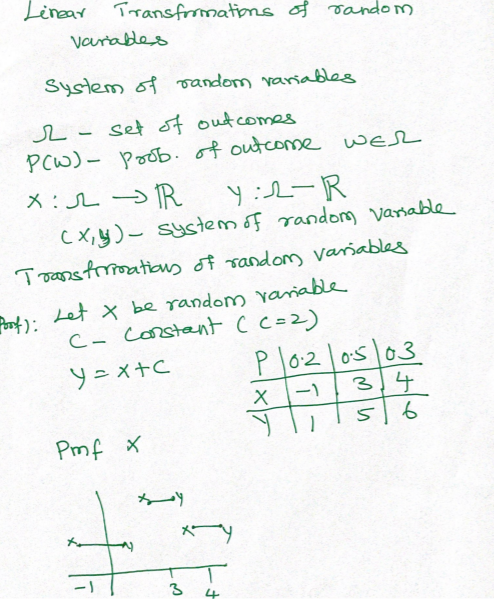 Linear Transformations of random
variables
System of random variables
Ω - set of outcomes
P(W) - Prob. of outcome W∈Ω
X : Ω → ℝ    Y : Ω - ℝ
(X,Y) - system of random variable
Transformations of random variables
Let X be random variable
C - constant (C=2)
Y = X+C
P | 0.2 | 0.5 | 0.3
X | -1 | 3 | 4
Y | 1 | 5 | 6
Pmf X
X Y
X Y
X Y
-1 3 4